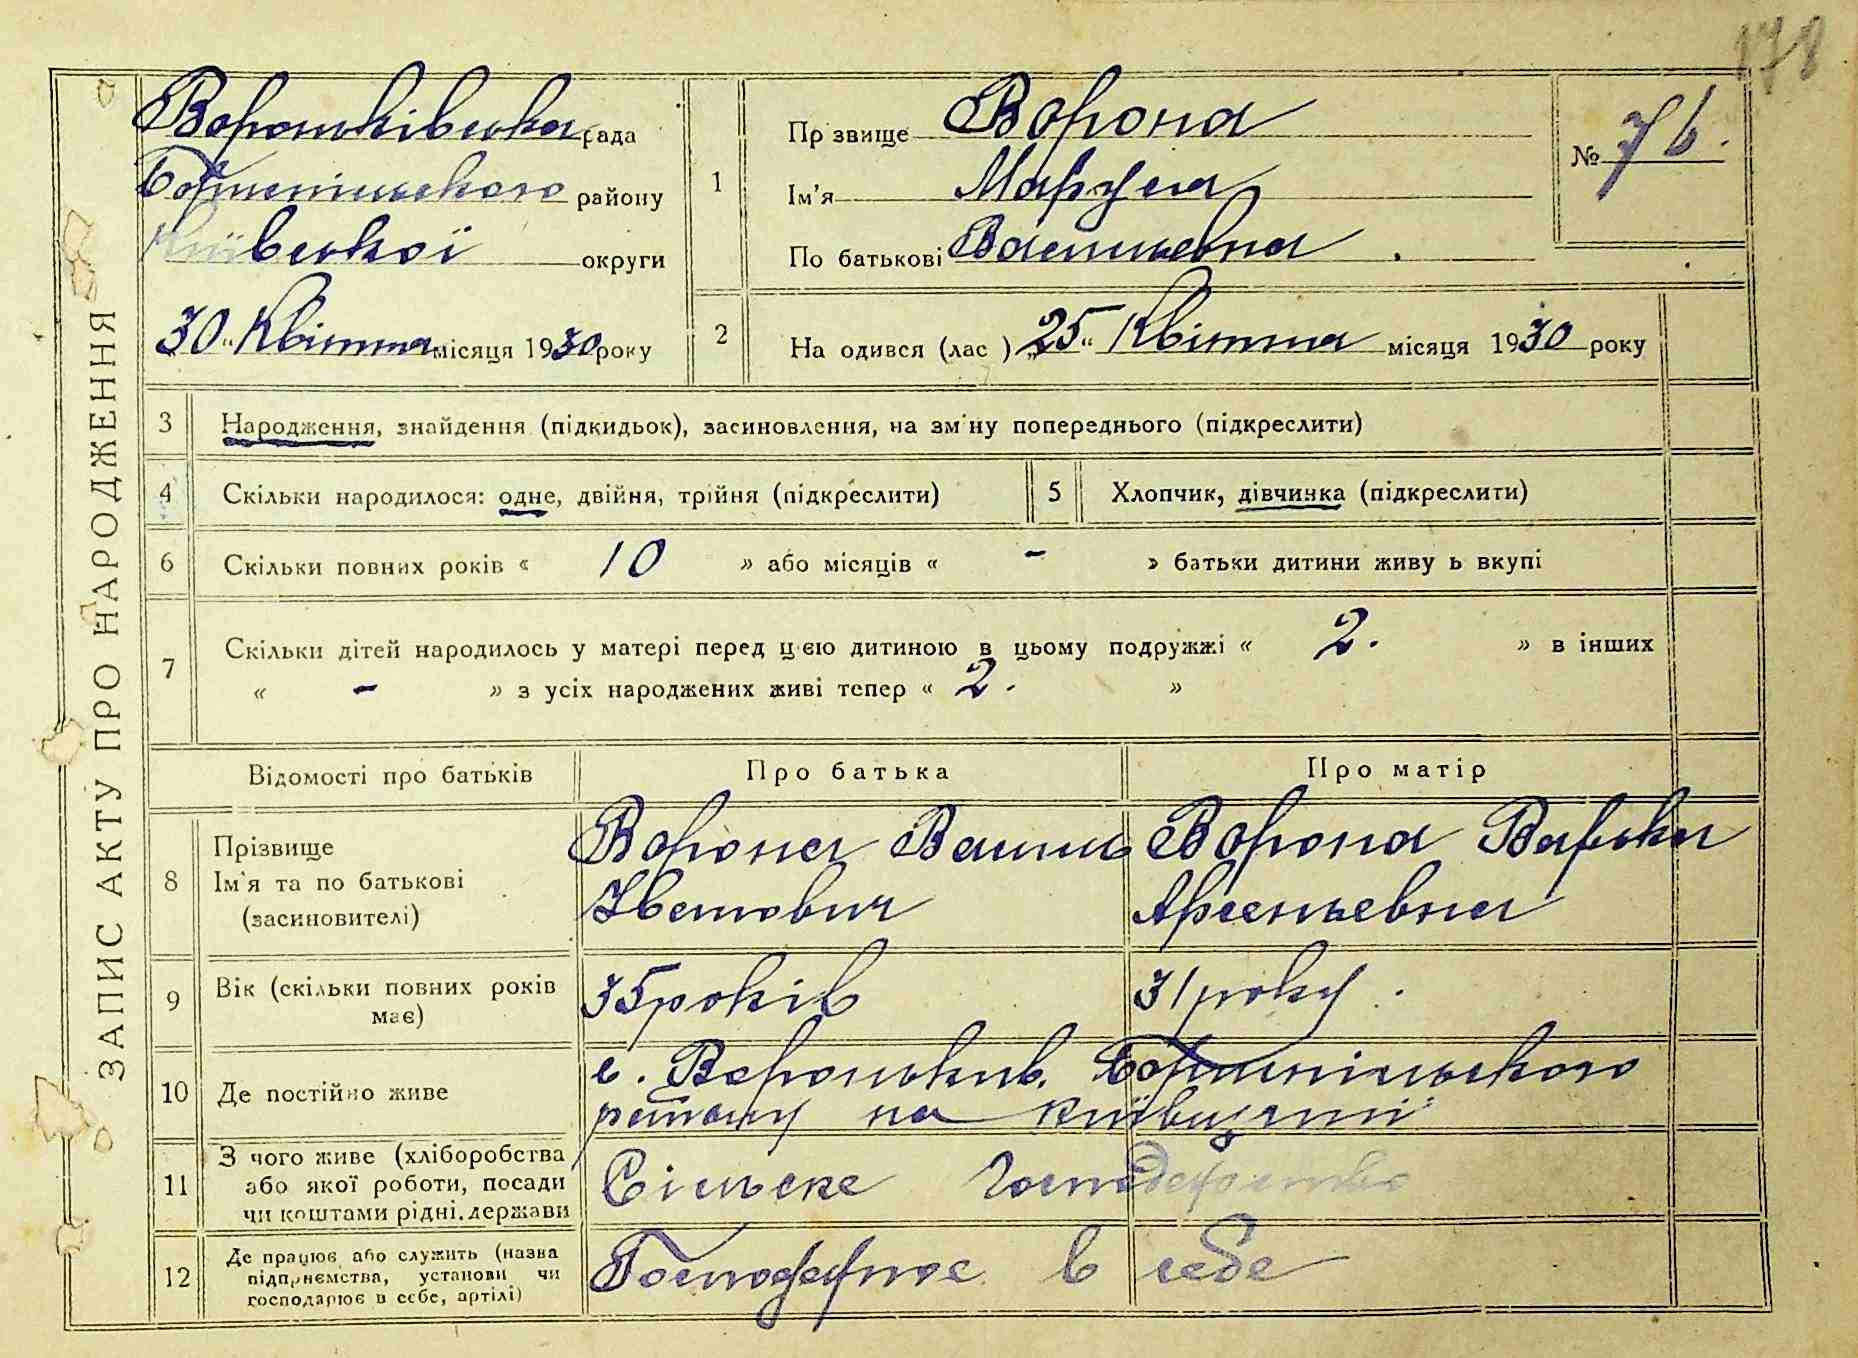 171
ЗАПИС АКТУ ПРО НАРОДЖЕННЯ
Вороньківська рада
Бориспільського району
Київської округи
30 " Квітня місяця 1930 року
1
Пр звище Ворона
Ім'я Маруся
По батькові Васильевна
№ 76.
2
На одився (лас ) „25" Квітня місяця 1930 року
3 Народження, знайдення (підкидьок), засиновлення, на зм ну попереднього (підкреслити)
4 Скільки народилося: одне, двійня, трійня (підкреслити) 5 Хлопчик, дівчинка (підкреслити)
6 Скільки повних років « 10 » або місяців « - » батьки дитини живу ь вкупі
7 Скільки дітей народилось у матері перед цією дитиною в цьому подружжі « 2. » в інших
« - » з усіх народжених живі тепер « 2. »
Відомості про батьків Про батька Про матір
8 Прізвище
Ім'я та по батькові
(засиновителі)
Ворона Василь
Иванович
Ворона Варька
Арсеньевна
9 Вік (скільки повних років
має)
35 років 31 року.
10 Де постійно живе
с. Вороньків. Бориспільського
району на Київщині
11 З чого живе (хліборобства
або якої роботи, посади
чи коштами рідні, держави
Сільске Господарство
12 Де працює або служить (назва
підприємства, установи чи
господарює в себе, артілі)
Господарює в себе